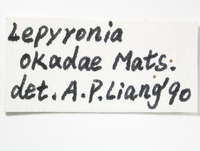 Lepyronia
okadae Mats.
det. A.P.Liang'90